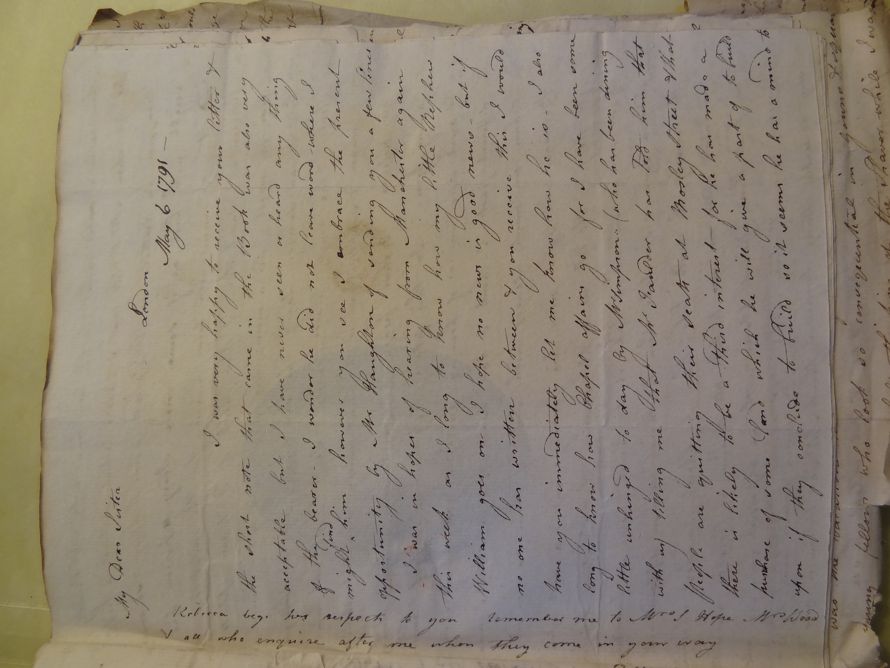 London May 6 1791 —
My Dear Sister
I was very happy to receive your letter &
the short note that came in the Book was also very
acceptable but I have never seen or heard any thing
of the bearer - I wonder he did not leave word where I
might find him however you see I embrace the present
opportunity by Mr Haughton of sending you a few lines
I was in hopes of hearing from Manchester again
this week as I long to know how my little Nephew
William goes on I hope no news is good news - but if
no one has written between & you receive this I would
have you immediately let me know how he is - I also
long to know how Chapel affairs go for I have been some
little unhinged to day by Mr Simpson (who has been dining
with us) telling me that Mr has told him that
People are quitting their seats at Mosley Street & that
there is likely to be a third interest - for he has made a
purchase of some land which he will give a part of to build
upon if they conclude to build so it seems he has a mind to
Rebecca begs her respect to you remember me to Mrs J Hope Mrs Wood
& all who enquire after me when they come in your way
was me
young fellows who look so consequential in